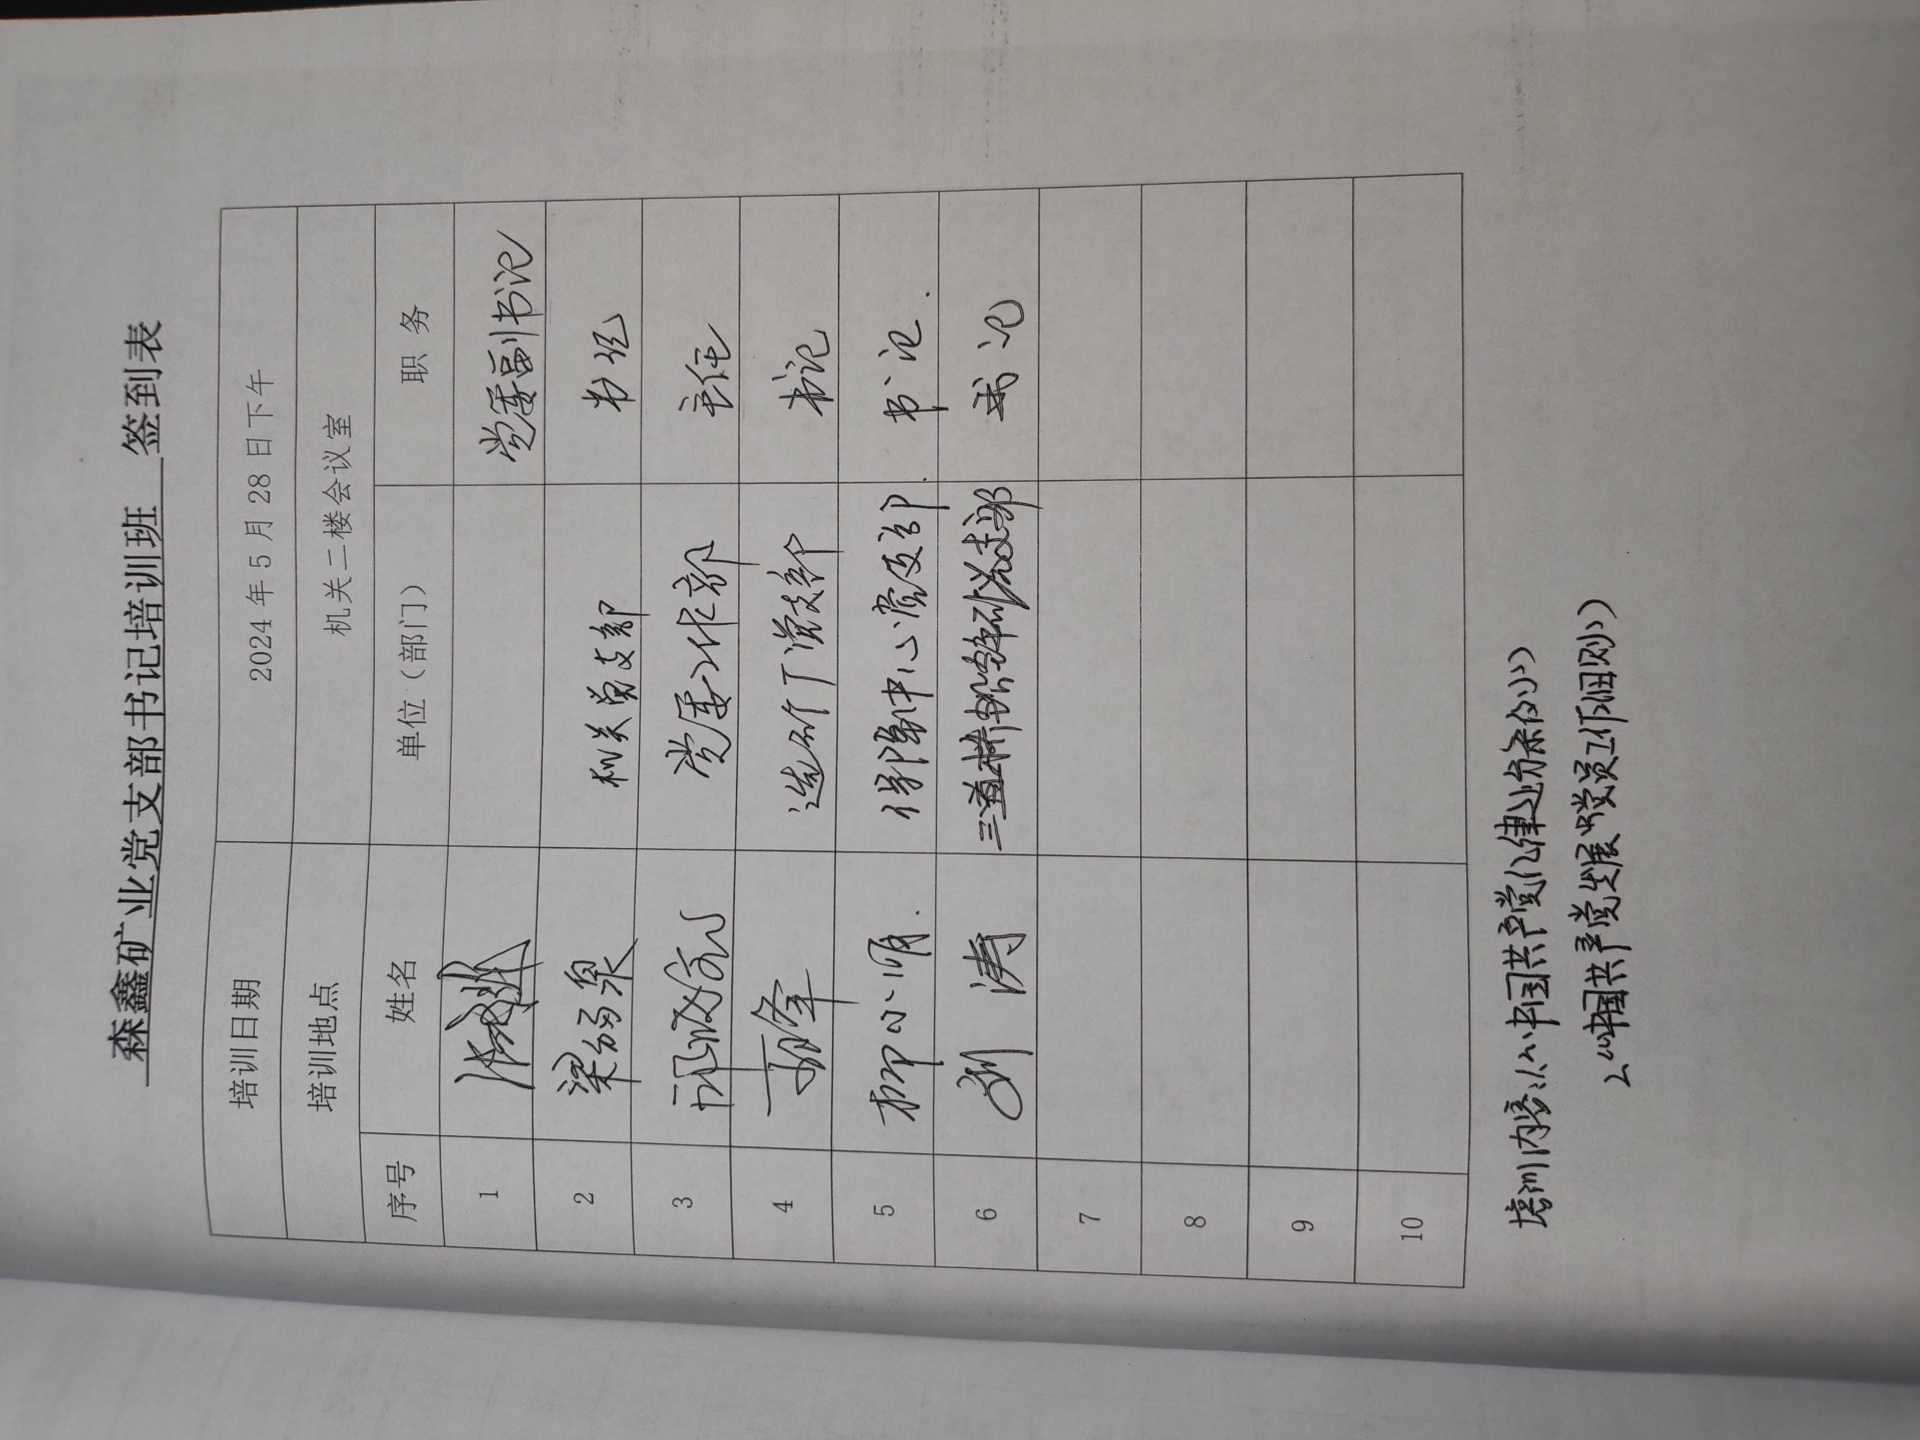 森鑫矿业党支部书记培训班 签到表
培训日期 2024年5月28日下午
培训地点 机关二楼会议室
序号 姓名 单位（部门） 职务
1 党委副书记
2 梁 泉 机关党支部 书记
3 党委工作部 主任
4 选矿厂党支部 书记
5 柳小顺 保障中心党支部 书记
6 刘涛 三道 支部 书记
7
8
9
10
培训内容：1、《中国共产党纪律处分条例》
2、《中国共产党发展党员工作细则》